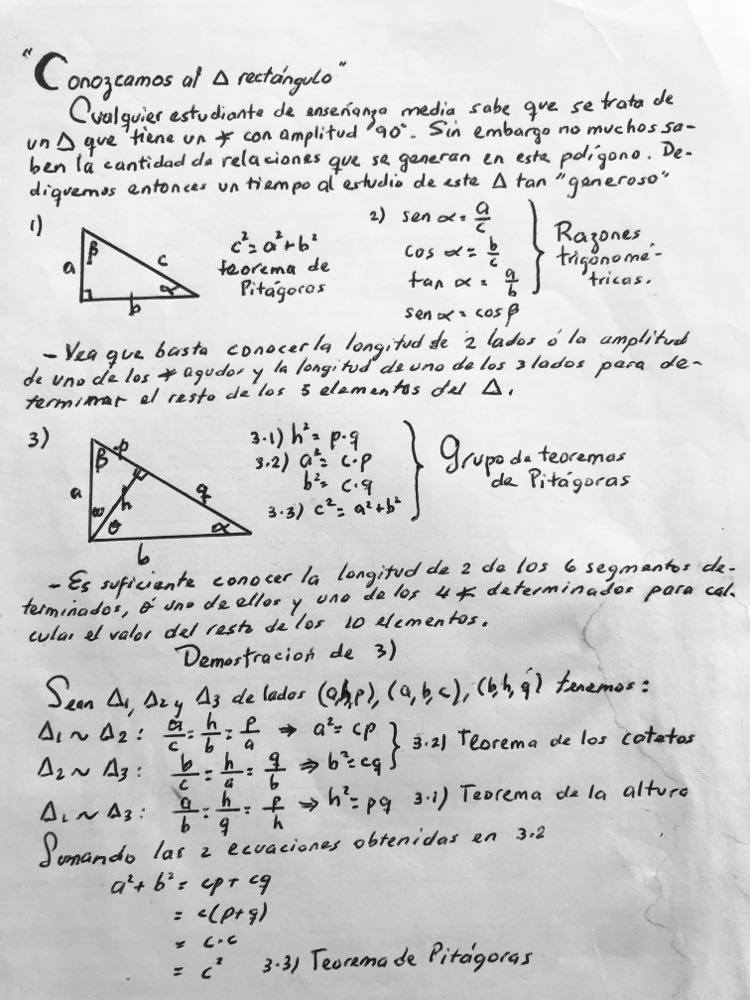 "Conozcamos al Δ rectángulo"
Cualquier estudiante de enseñanza media sabe que se trata de
un Δ que tiene un ∢ con amplitud 90°. Sin embargo no muchos sa-
ben la cantidad de relaciones que se generan en este polígono. De-
diquemos entonces un tiempo al estudio de este Δ tan "generoso"
1)
a
β
c
α
b
c² = a² + b²
teorema de
Pitágoras
2) sen α = a/c
cos α = b/c
tan α = a/b
sen α = cos β
Razones
trigonomé-
tricas.
- Vea que basta conocer la longitud de 2 lados ó la amplitud
de uno de los ∢ agudos y la longitud de uno de los 3 lados para de-
terminar el resto de los 5 elementos del Δ.
3)
β
p
a
ω
h
q
θ
α
b
3.1) h² = p·q
3.2) a² = c·p
b² = c·q
3.3) c² = a² + b²
Grupo de teoremas
de Pitágoras
- Es suficiente conocer la longitud de 2 de los 6 segmentos de-
terminados, ó uno de ellos y uno de los 4 ∢ determinados para cal-
cular el valor del resto de los 10 elementos.
Demostración de 3)
Sean Δ₁, Δ₂ y Δ₃ de lados (a,h,p), (a,b,c), (b,h,q) tenemos:
Δ₁ ~ Δ₂ : a/c = h/b = p/a ⇒ a² = cp
Δ₂ ~ Δ₃ : b/c = h/a = q/b ⇒ b² = cq
3.2) Teorema de los catetos
Δ₁ ~ Δ₃ : a/b = h/q = p/h ⇒ h² = pq 3.1) Teorema de la altura
Sumando las 2 ecuaciones obtenidas en 3.2
a² + b² = cp + cq
= c(p+q)
= c·c
= c² 3.3) Teorema de Pitágoras